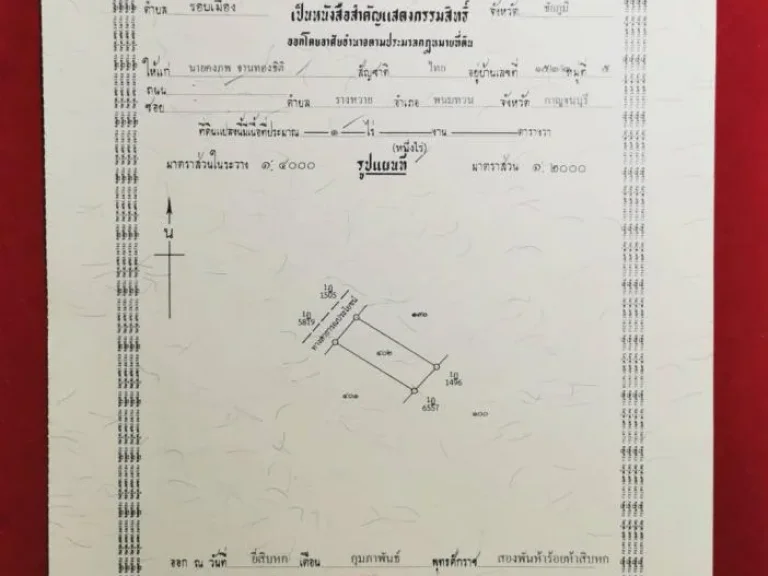 ตำบล รอบเมือง จังหวัด ชัยภูมิ
เป็นหนังสือสำคัญแสดงกรรมสิทธิ์
ออกโดยอาศัยอำนาจตามประมวลกฎหมายที่ดิน
ให้แก่ สัญชาติ ไทย อยู่บ้านเลขที่ หมู่ที่ ๕
ถนน
ซอย ตำบล รางหวาย อำเภอ พนมทวน จังหวัด กาญจนบุรี
ที่ดินแปลงนี้มีเนื้อที่ประมาณ ๑ ไร่ งาน ตารางวา
(หนึ่งไร่)
มาตราส่วนในระวาง ๑: ๔๐๐๐ รูปแผนที่ มาตราส่วน ๑: ๒๐๐๐
น
1ฎ
1505
1ฎ
5819
ทางสาธารณประโยชน์
๑๙๐
๔๐๒
1ฎ
1496
๔๐๑
1ฎ
6557
๑๐๐
ออก ณ วันที่ ยี่สิบหก เดือน กุมภาพันธ์ พุทธศักราช สองพันห้าร้อยห้าสิบหก